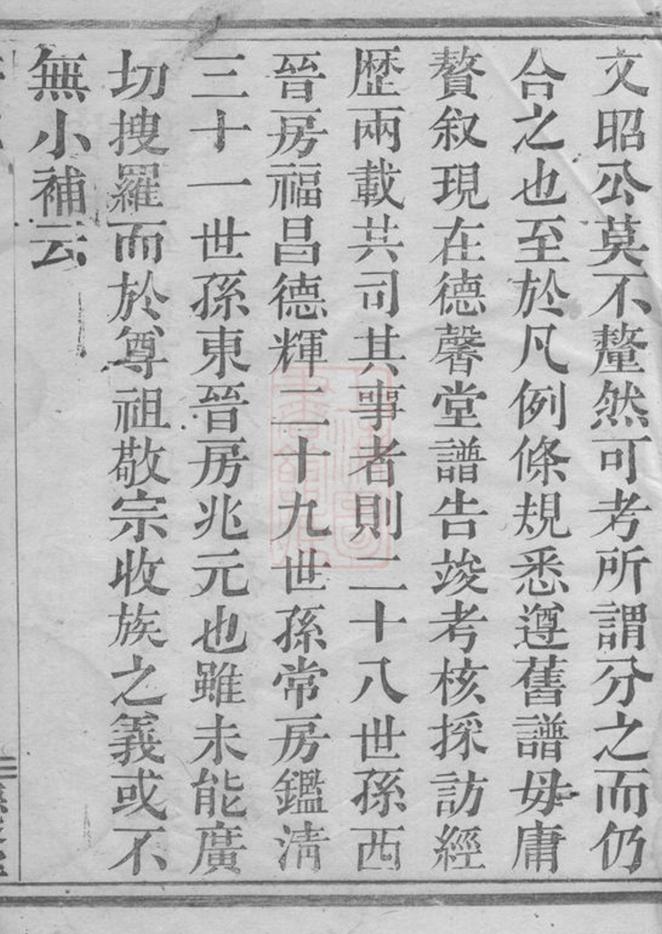 文昭公莫不釐然可考所謂分之而仍
合之也至於凡例條規悉遵舊譜毋庸
贅叙現在德馨堂譜告竣考核採訪經
歷兩載共司其事者則二十八世孫西
晉房福昌德輝二十九世孫常房鑑淸
三十一世孫東晉房兆元也雖未能廣
切搜羅而於尊祖敬宗收族之義或不
無小補云